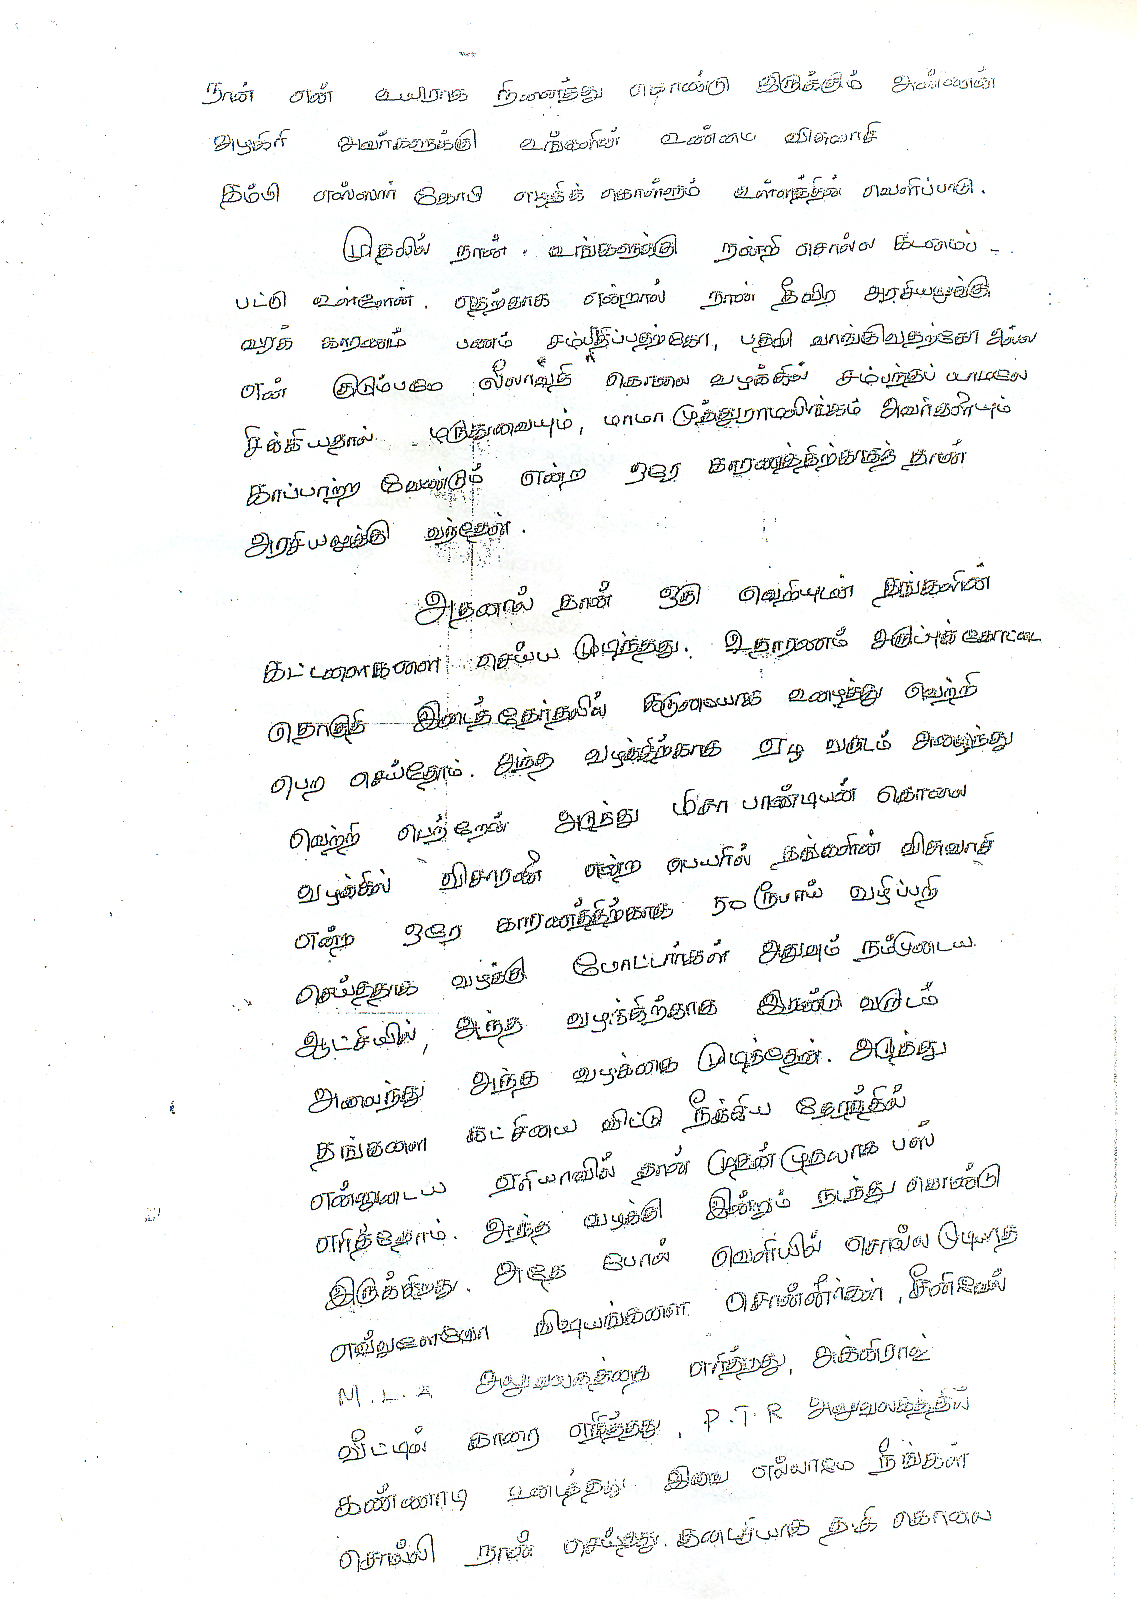 நான் என் உயிராக நினைத்து கொண்டு இருக்கும் அண்ணன்
அழகிரி அவர்களுக்கு உங்களின் உண்மை விசுவாசி
தம்பி எஸ்ஸார் கோபி எழுதிக் கொள்ளும் உள்ளத்தின் வெளிப்பாடு.
முதலில் நான் உங்களுக்கு நன்றி சொல்ல கடமைப் -
பட்டு உள்ளேன். எதற்காக என்றால் நான் தீவிர அரசியலுக்கு
வரக் காரணம் பணம் சம்பாதிப்பதற்கோ, பதவி வாங்குவதற்கோ அல்ல
என் குடும்பமே லீலாவதி கொலை வழக்கில் சம்பந்தப் படாமலே
சிக்கியதால் மருதுவையும், மாமா முத்துராமலிங்கம் அவர்களையும்
காப்பாற்ற வேண்டும் என்ற ஒரே காரணத்திற்காகத் தான்
அரசியலுக்கு வந்தேன்.
அதனால் தான் ஒரு வெறியுடன் தங்களின்
கட்டளைகளை செய்ய முடிந்தது. உதாரணம் அருப்புக்கோட்டை
தொகுதி இடைத்தேர்தலில் கடுமையாக உழைத்து வெற்றி
பெற செய்தோம். அந்த வழக்கிற்காக ஏழு வருடம் அலைந்து
வெற்றி பெற்றேன் அடுத்து மிசா பாண்டியன் கொலை
வழக்கில் விசாரணை என்ற பெயரில் தங்களின் விசுவாசி
என்ற ஒரே காரணத்திற்காக 50 ரூபாய் வழிப்பறி
செய்ததாக வழக்கு போட்டார்கள் அதுவும் நம்முடைய
ஆட்சியில், அந்த வழக்கிற்காக இரண்டு வருடம்
அலைந்து அந்த வழக்கை முடித்தேன். அடுத்து
தங்களை கட்சியை விட்டு நீக்கிய நேரத்தில்
என்னுடைய ஏரியாவில் தான் முதன் முதலாக பஸ்
எரித்தோம். அந்த வழக்கு இன்றும் நடந்து கொண்டு
இருக்கிறது. அதே போல் வெளியில் சொல்ல முடியாத
எவ்வளவோ விஷயங்களை சொன்னீர்கள், சீனிவேல்
M.L.A அலுவலகத்தை எரித்தது, அக்கிராஜ்
வீட்டில் காரை எரித்தது, P.T.R அலுவலகத்தில்
கண்ணாடி உடைத்தது இவை எல்லாமே நீங்கள்
சொல்லி நான் செய்தது. கடைசியாக த.கி கொலை